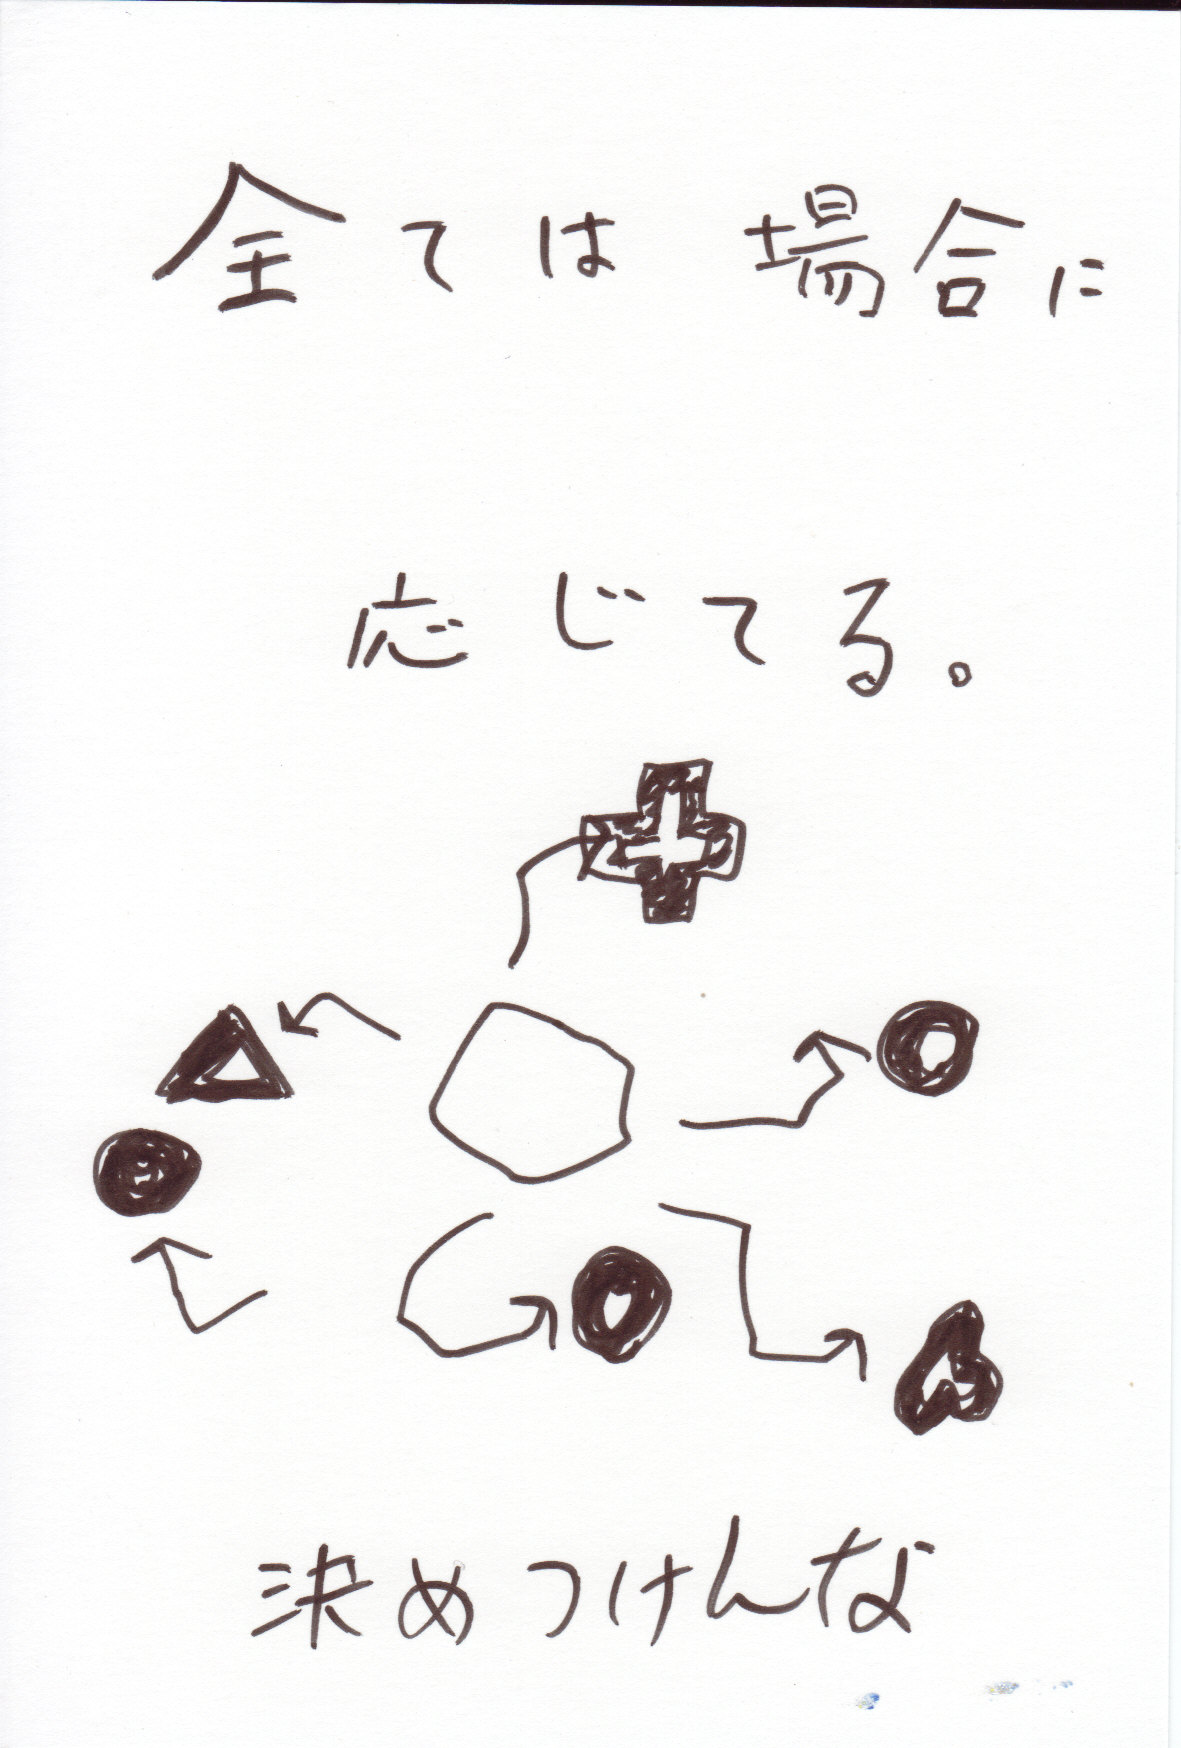 全ては場合に
応じてる。
決めつけんな